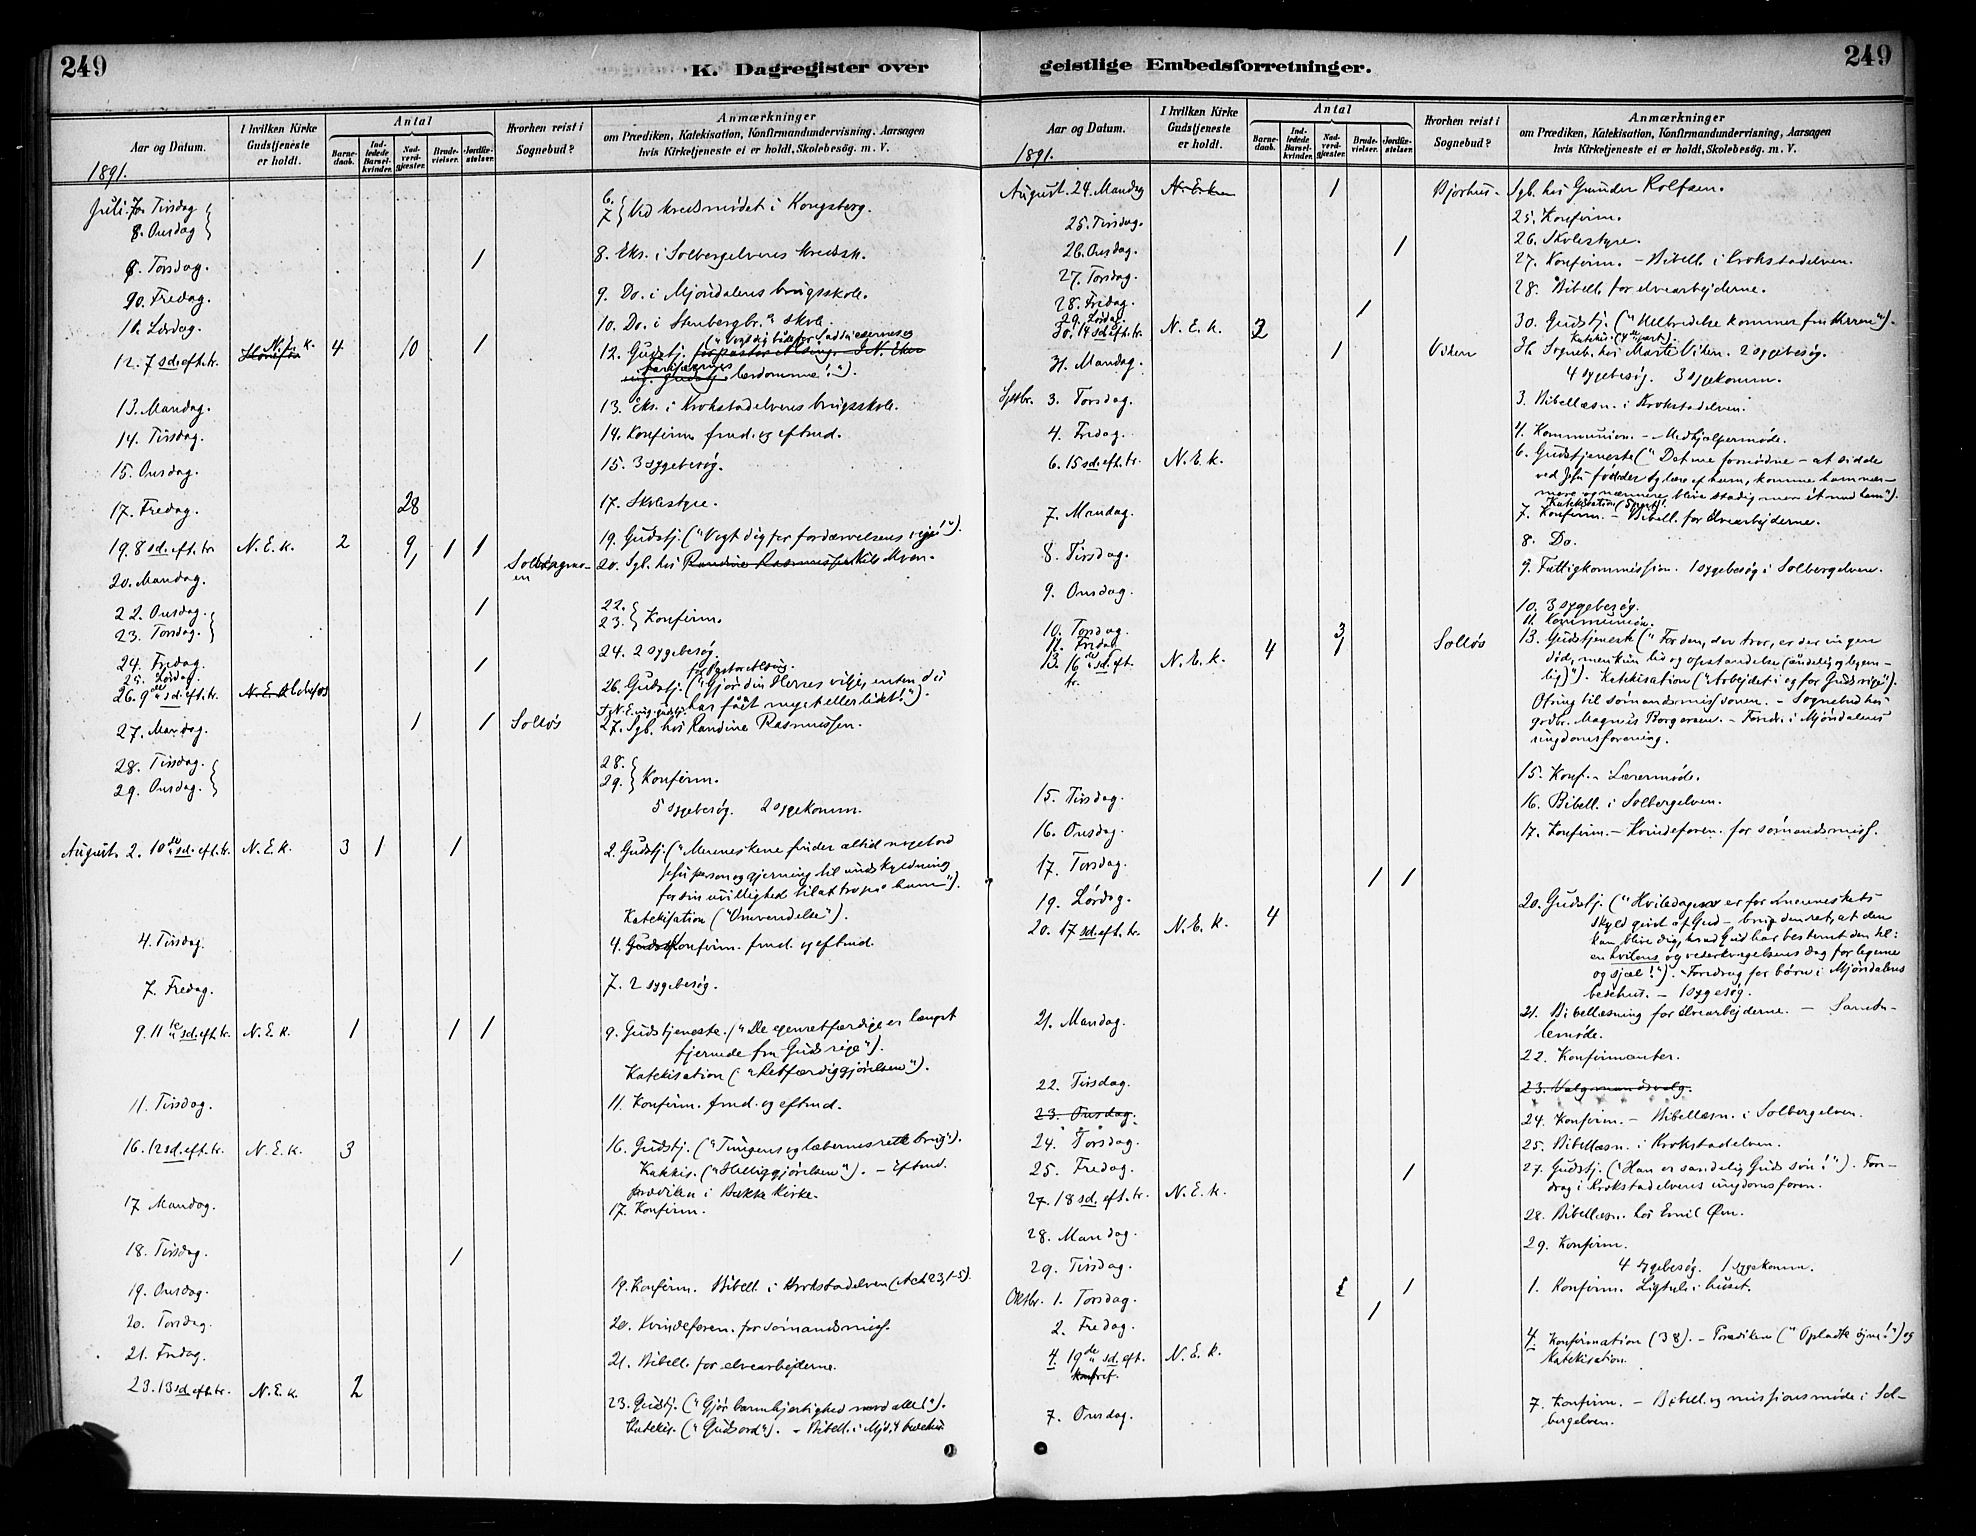 249
K. Dagregister over
Aar og Datum.
I hvilken Kirke Gudstjeneste er holdt.
Antal
Barnedaab.
Indledede Barselkvinder.
Nadverdgjæster.
Brudevielser.
Jordfæstelser.
Hvorhen reist i Sognebud?
Anmærkninger
om Prædiken, Katekisation, Konfirmandundervisning, Aarsagen
hvis Kirketjeneste ei er holdt, Skolebesøg. m. V.
1891.
Juli 7. Tirsdag
8. Onsdag
6.
7 } Ved kredsmødet i Kongsberg.
9. Torsdag. 1 8. Eks. i Solbergelvens kredssk.
10. Fredag. 9. Do. i Mjøndalens brugsskole.
Lørdag. 10. Do. i Stenbergbr.s skole.
12. 7 sd. eft. tr. N. E. k. 4 10 1 12. Gudstj.
lærdomme!").
13. Mandag. 13. Eks. i Krokstadelvens brugsskole.
14. Tirsdag. 14. Konfirm. fmd. og eftmd.
15. Onsdag. 15. 3 sygebesøg.
17. Fredag. 28 17. Skolestyre.
19. 8 sd. eft. tr. N. E. k. 2 9 1 1 19. Gudstj. ("Vogt dig for fordærvelsens veje!").
20. Mandag. 20. Sgb. hos Randine Rasmussen Nils Moen.
22. Onsdag. 1 22.
23. Torsdag. 23. } Konfirm.
24. Fredag. 24. 2 sygebesøg.
25. Lørdag. 1
26. 9de sd. eft. tr. 26. Gudstj. ("Gjør din Herres vilje, enten du
har fået meget eller lidt!")
27. Mandag. 1 1 Solløs 27. Sgb. hos Randine Rasmussen.
28. Tirsdag. 28.
29. Onsdag. 29. } Konfirm.
5 sygebesøg. 2 sygekomm.
August. 2. 10de sd. eft. tr. N. E. k. 3 1 1 2. Gudstj. ("Menneskene finder altid noget ved
Jesu person og gjerning til undskyldning
for sin uvillighed til at tro på ham").
Katekisation ("Omvendelse").
4. Tirsdag. 4. Gudstj. Konfirm. fmd. og eftmd.
7. Fredag. 7. 2 sygebesøg.
9. 11te sd. eft. tr. N. E. k. 1 1 1 9. Gudstjeneste. ("De egenretfærdige er længst
fjernede fra Guds rige").
Katekisation ("Retfærdiggjørelsen").
11. Tirsdag. 11. Konfirm. fmd. og eftmd.
16. 12 sd. eft. tr. N. E. k. 3 16. Gudstj. ("Tungens og læbernes rette brug").
Katekis. ("Helliggjørelsen"). – Eftmd.
prædiken i Bakke Kirke.
17 Mandag. 17. Konfirm.
18. Tirsdag. 1
19. Onsdag. 19. Konfirm. Bibell. i Krokstadelven (Act 23, 1-5).
20. Torsdag. 20. Kvindeforen. for sømandsmiss.
21. Fredag. 21. Bibell. for elvearbejderne.
23. 13 sd. eft. tr. N. E. k. 2 23. Gudstj. ("Gjør barmhjertighed mod alle!").
Katekis. ("Guds ord"). – Bibell. i Mjd. bedehus.
249
geistlige Embedsforretninger.
Aar og Datum.
I hvilken Kirke Gudstjeneste er holdt.
Antal
Barnedaab.
Indledede Barselkvinder.
Nadverdgjæster.
Brudevielser.
Jordfæstelser.
Hvorhen reist i Sognebud?
Anmærkninger
om Prædiken, Katekisation, Konfirmandundervisning, Aarsagen
hvis Kirketjeneste ei er holdt, Skolebesøg. m. V.
1891.
August. 24. Mandag N. E. k. 1 Bjorhus Sgb. hos Gunder Rolfsen.
25. Tirsdag. 25. Konfirm.
26. Onsdag. 1 26. Skolestyre.
27. Torsdag. 27. Konfirm. – Bibell. i Krokstadelven.
28. Fredag. 28. Bibell. for elvearbejderne.
29. Lørdag. 1
30. 14 sd. eft. tr. N. E. k. 2 30. Gudstj. ("Helbredelse kommer fra Herren").
31. Mandag. 1 Viken 31. Sogneb. hos Marte Viken. 2 sygebesøg.
4 sygebesøg. 3 sygekomm.
Septbr. 3. Torsdag. 3. Bibellæsn. i Krokstadelven.
4. Fredag. 4. Kommunion. – Medhjælpermøde.
6. 15 sd. eft. tr. N. E. k. 6. Gudstjeneste ("Det ene fornødne – at sidde
ved Jesu fødder og lære af ham, komme ham nær-
mere og nærmere, blive stadig mer ét med ham").
Katekisation
7. Mandag. 7. Konfirm. – Bibell. for elvearbejderne.
8. Tirsdag. 8. Do.
9. Onsdag. 9. Fattigkommission. 1 sygebesøg i Solbergelven.
10. Torsdag. 3 10. 3 sygebesøg.
11. Fredag 11. Kommunion.
13. 16de sd. eft. tr. N. E. k. 4 1 Solløs 13. Gudstjeneste ("For den, der tror, er der ingen
død, men kun liv og opstandelse (åndelig og legem-
lig)"). Katekisation ("Arbejdet i og for Guds rige").
Ofring til sømandsmissionen. – Sognebud hos
grdbr. Magnus Borgersen. – Foredr. i Mjøndalens
ungdomsforening.
15. Tirsdag. 15. Konf. – Læremøde.
16. Onsdag. 16. Bibell. i Solbergelven.
17. Torsdag. 17. Konfirm. – Kvindeforen. for sømandsmiss.
19. Lørdag. 1 1
20. 17 sd. eft. tr. N. E. k. 4 20. Gudstj. ("Hviledagen er for menneskets
skyld givet af Gud – brug den ret, at den
kan blive dig, hvad Gud har bestemt den til:
en hvilens og vederkvægelsens dag for legeme
og sjæl!"). – Foredrag for børn i Mjøndalens
bedehus. – 1 sygesøg.
21. Mandag. 21. Bibellæsning for elvearbejderne. – Samta-
lemøde.
22. Tirsdag. 22. Konfirmanter.
23. Onsdag. 23. Valgmandsvalg.
24. Torsdag. 24. Konfirm. – Bibellæsn. i Solbergelven.
25. Fredag. 1 25. Bibellæsn. i Krokstadelven.
27. 18 sd. eft. tr. N. E. k. 27. Gudstj. ("Han er sandelig Guds søn!"). Fore-
drag i Krokstadelvens ungdomsforen.
28. Mandag. 28. Bibellæsn. hos Emil Øen.
29. Tirsdag. 29. Konfirm.
4 sygebesøg. 1 sygekomm.
Oktbr. 1. Torsdag. 1 1 1. Konfirm. Ligtale i huset.
2. Fredag. 1
4. 19de sd. eft. N. E. k. 4. Konfirmation (38). – Prædiken ("Opladte øjne!") og
Katekisation.
7. Onsdag. 7. Konfirm. – Bibell. og missionsmøde i Sol-
bergelven.